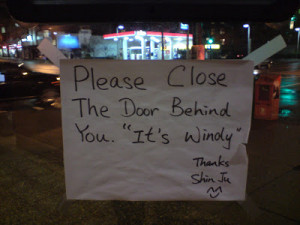 Please Close
The Door Behind
You. "It's Windy"
Thanks
Shin Ju